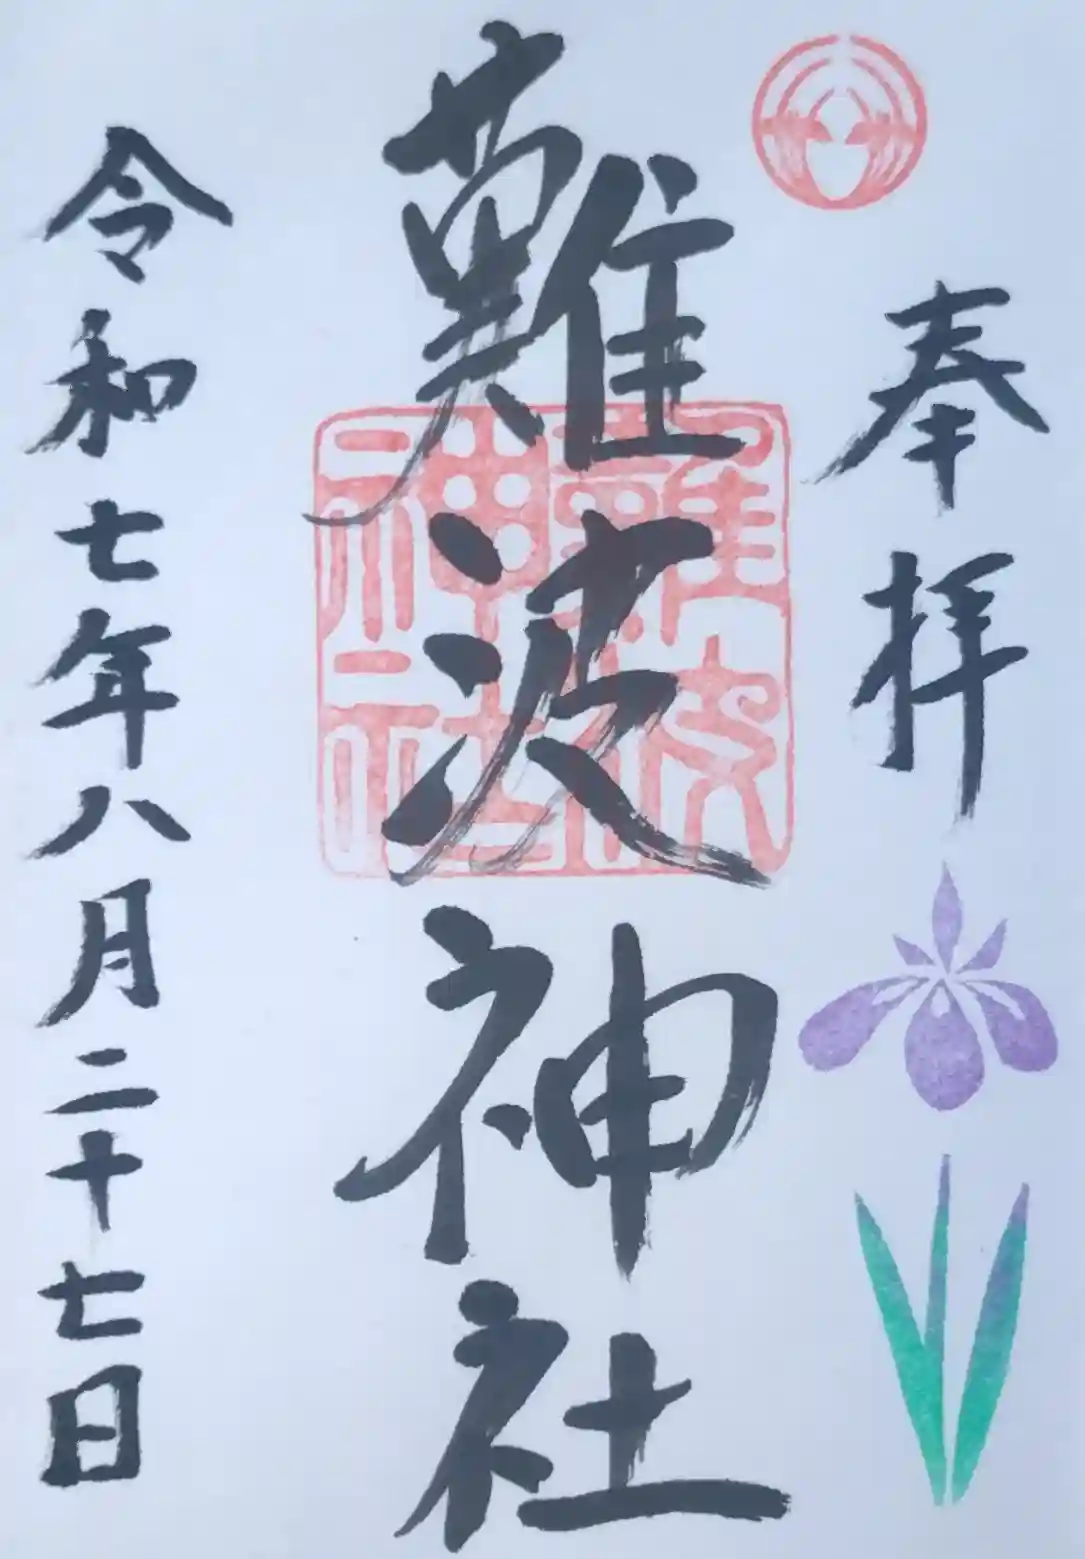 奉拝
難波神社
難波神社
令和七年八月二十七日